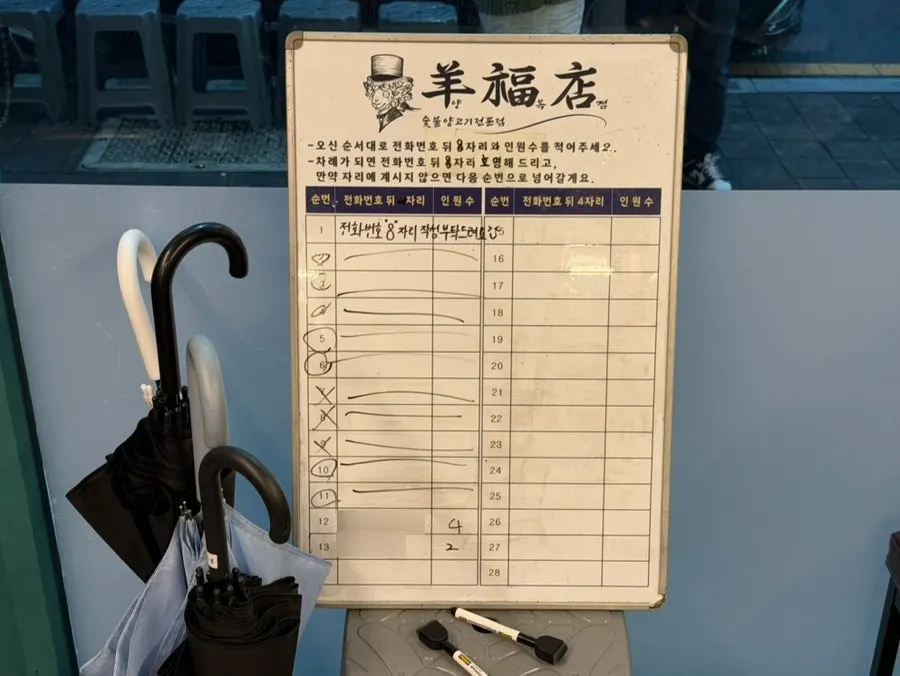 羊福店
양 복 점
숯불양고기전문점
-오신 순서대로 전화번호 뒤 8자리와 인원수를 적어주세요.
-차례가 되면 전화번호 뒤 8자리 호명해 드리고,
만약 자리에 계시지 않으면 다음 순번으로 넘어갈게요.
순번 전화번호 뒤 자리 인원수 순번 전화번호 뒤 4자리 인원수
1 전화번호 "8"자리 작성부탁드려요
2 16
3 17
4 18
5 19
6 20
7 21
8 22
9 23
10 24
11 25
12 4 26
13 2 27
28